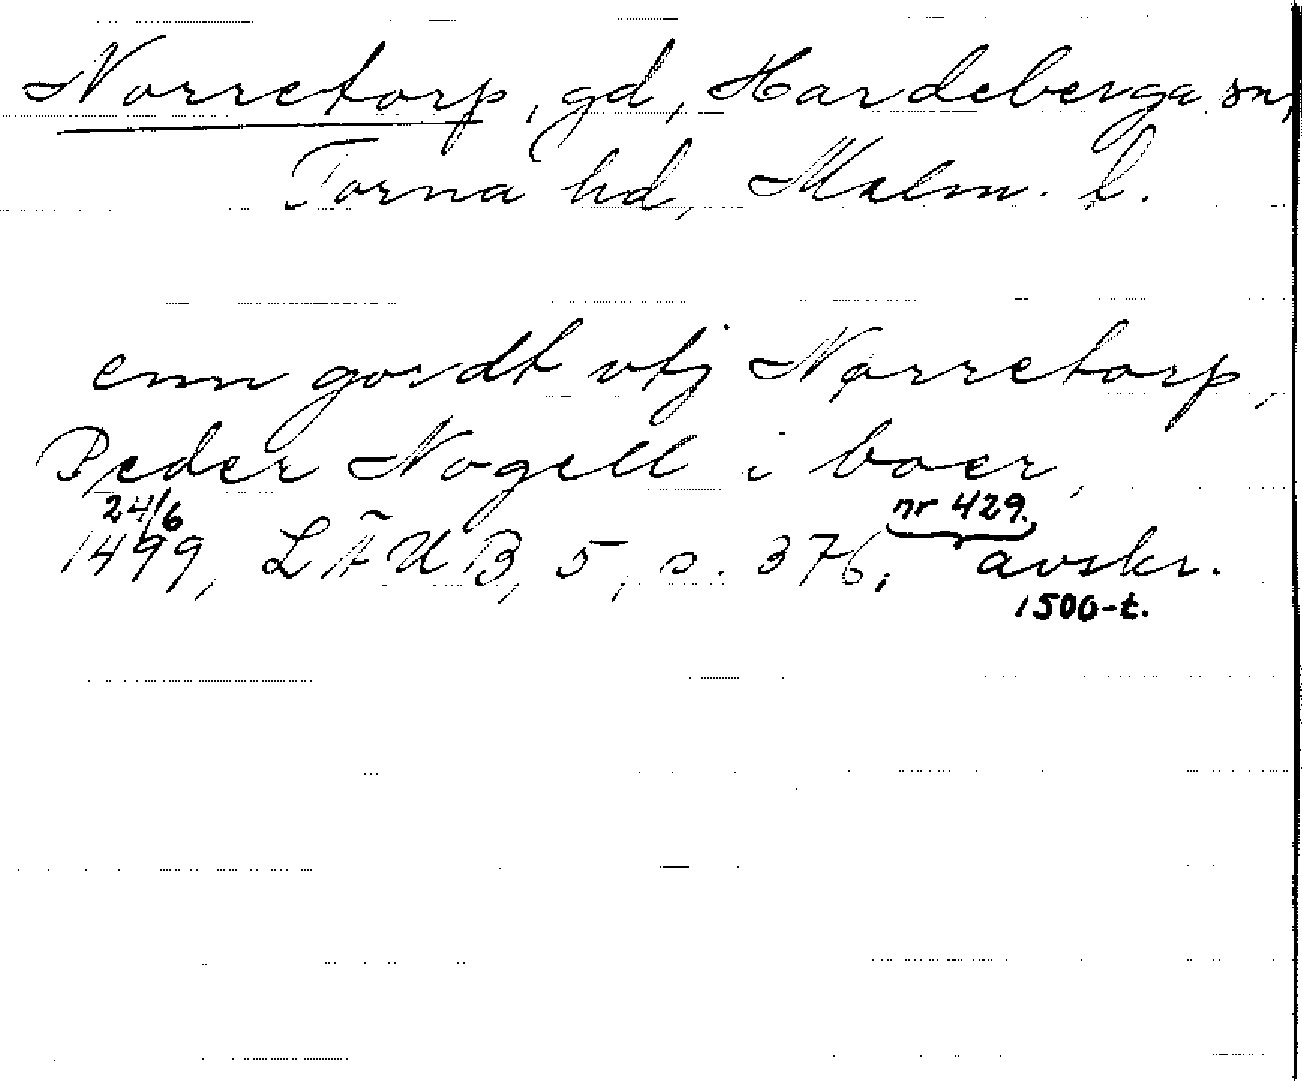 Norretorp, gd, Hardeberga sn,
Torna hd, Malm. l.
enn gordt vtj Norretorp,
Peder Nogell i boer,
24/6 nr 429
1499, LÄUB, 5, s. 376, avskr.
1500-t.